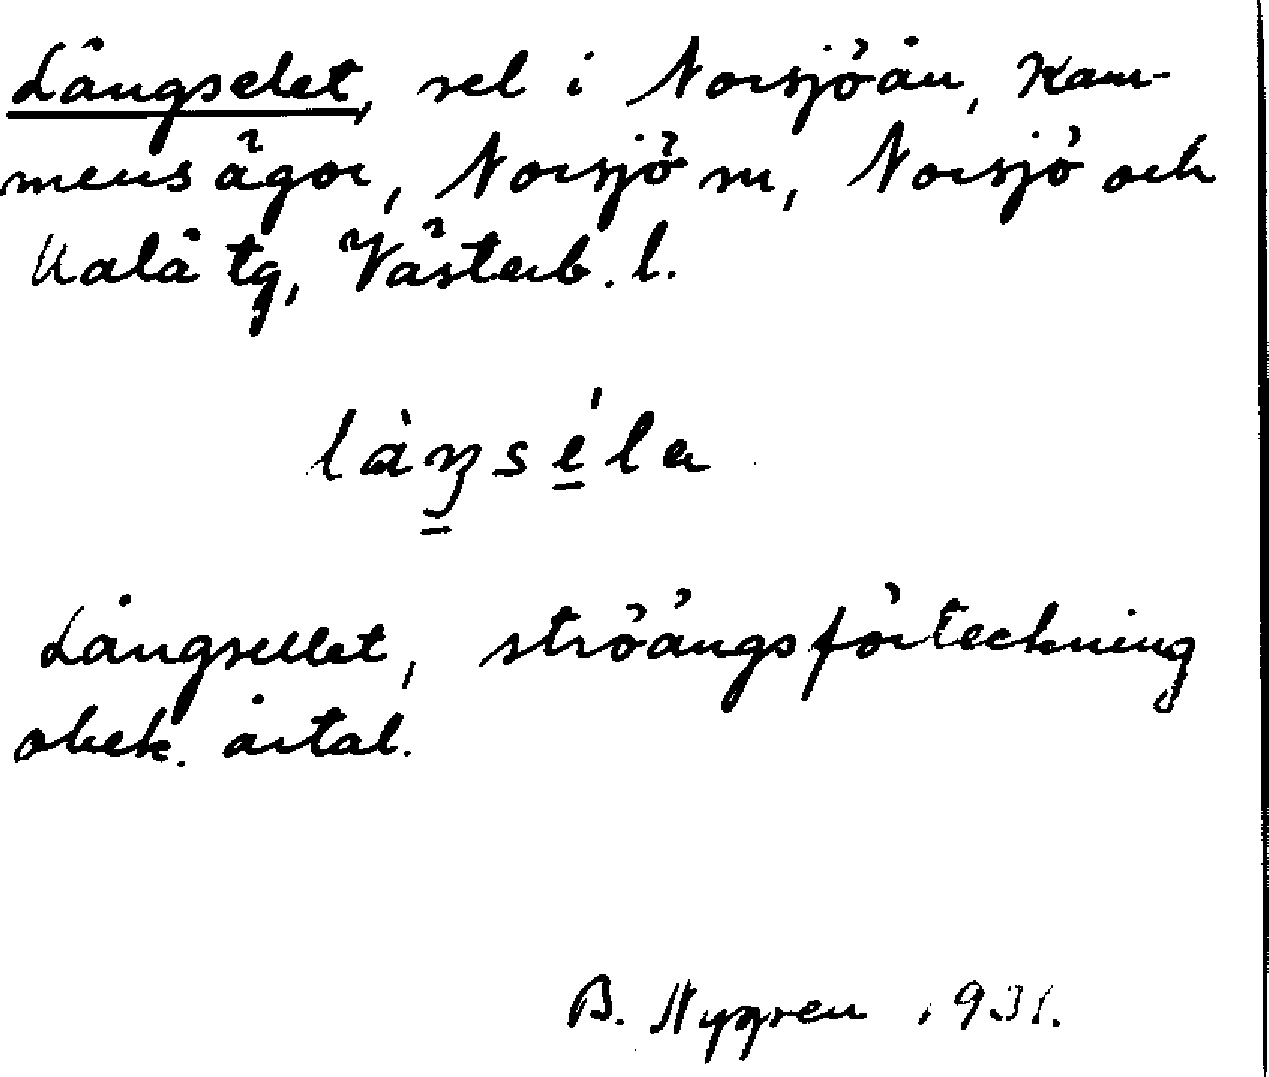 Långselet, sel i Norsjöån, Kam-
mens ägor, Norsjö sn, Norsjö och
Malå tg, Västerb. l.
làŋséla
Långsellet, ströängsförteckning
obek. årtal.
B. Nygren 1931.